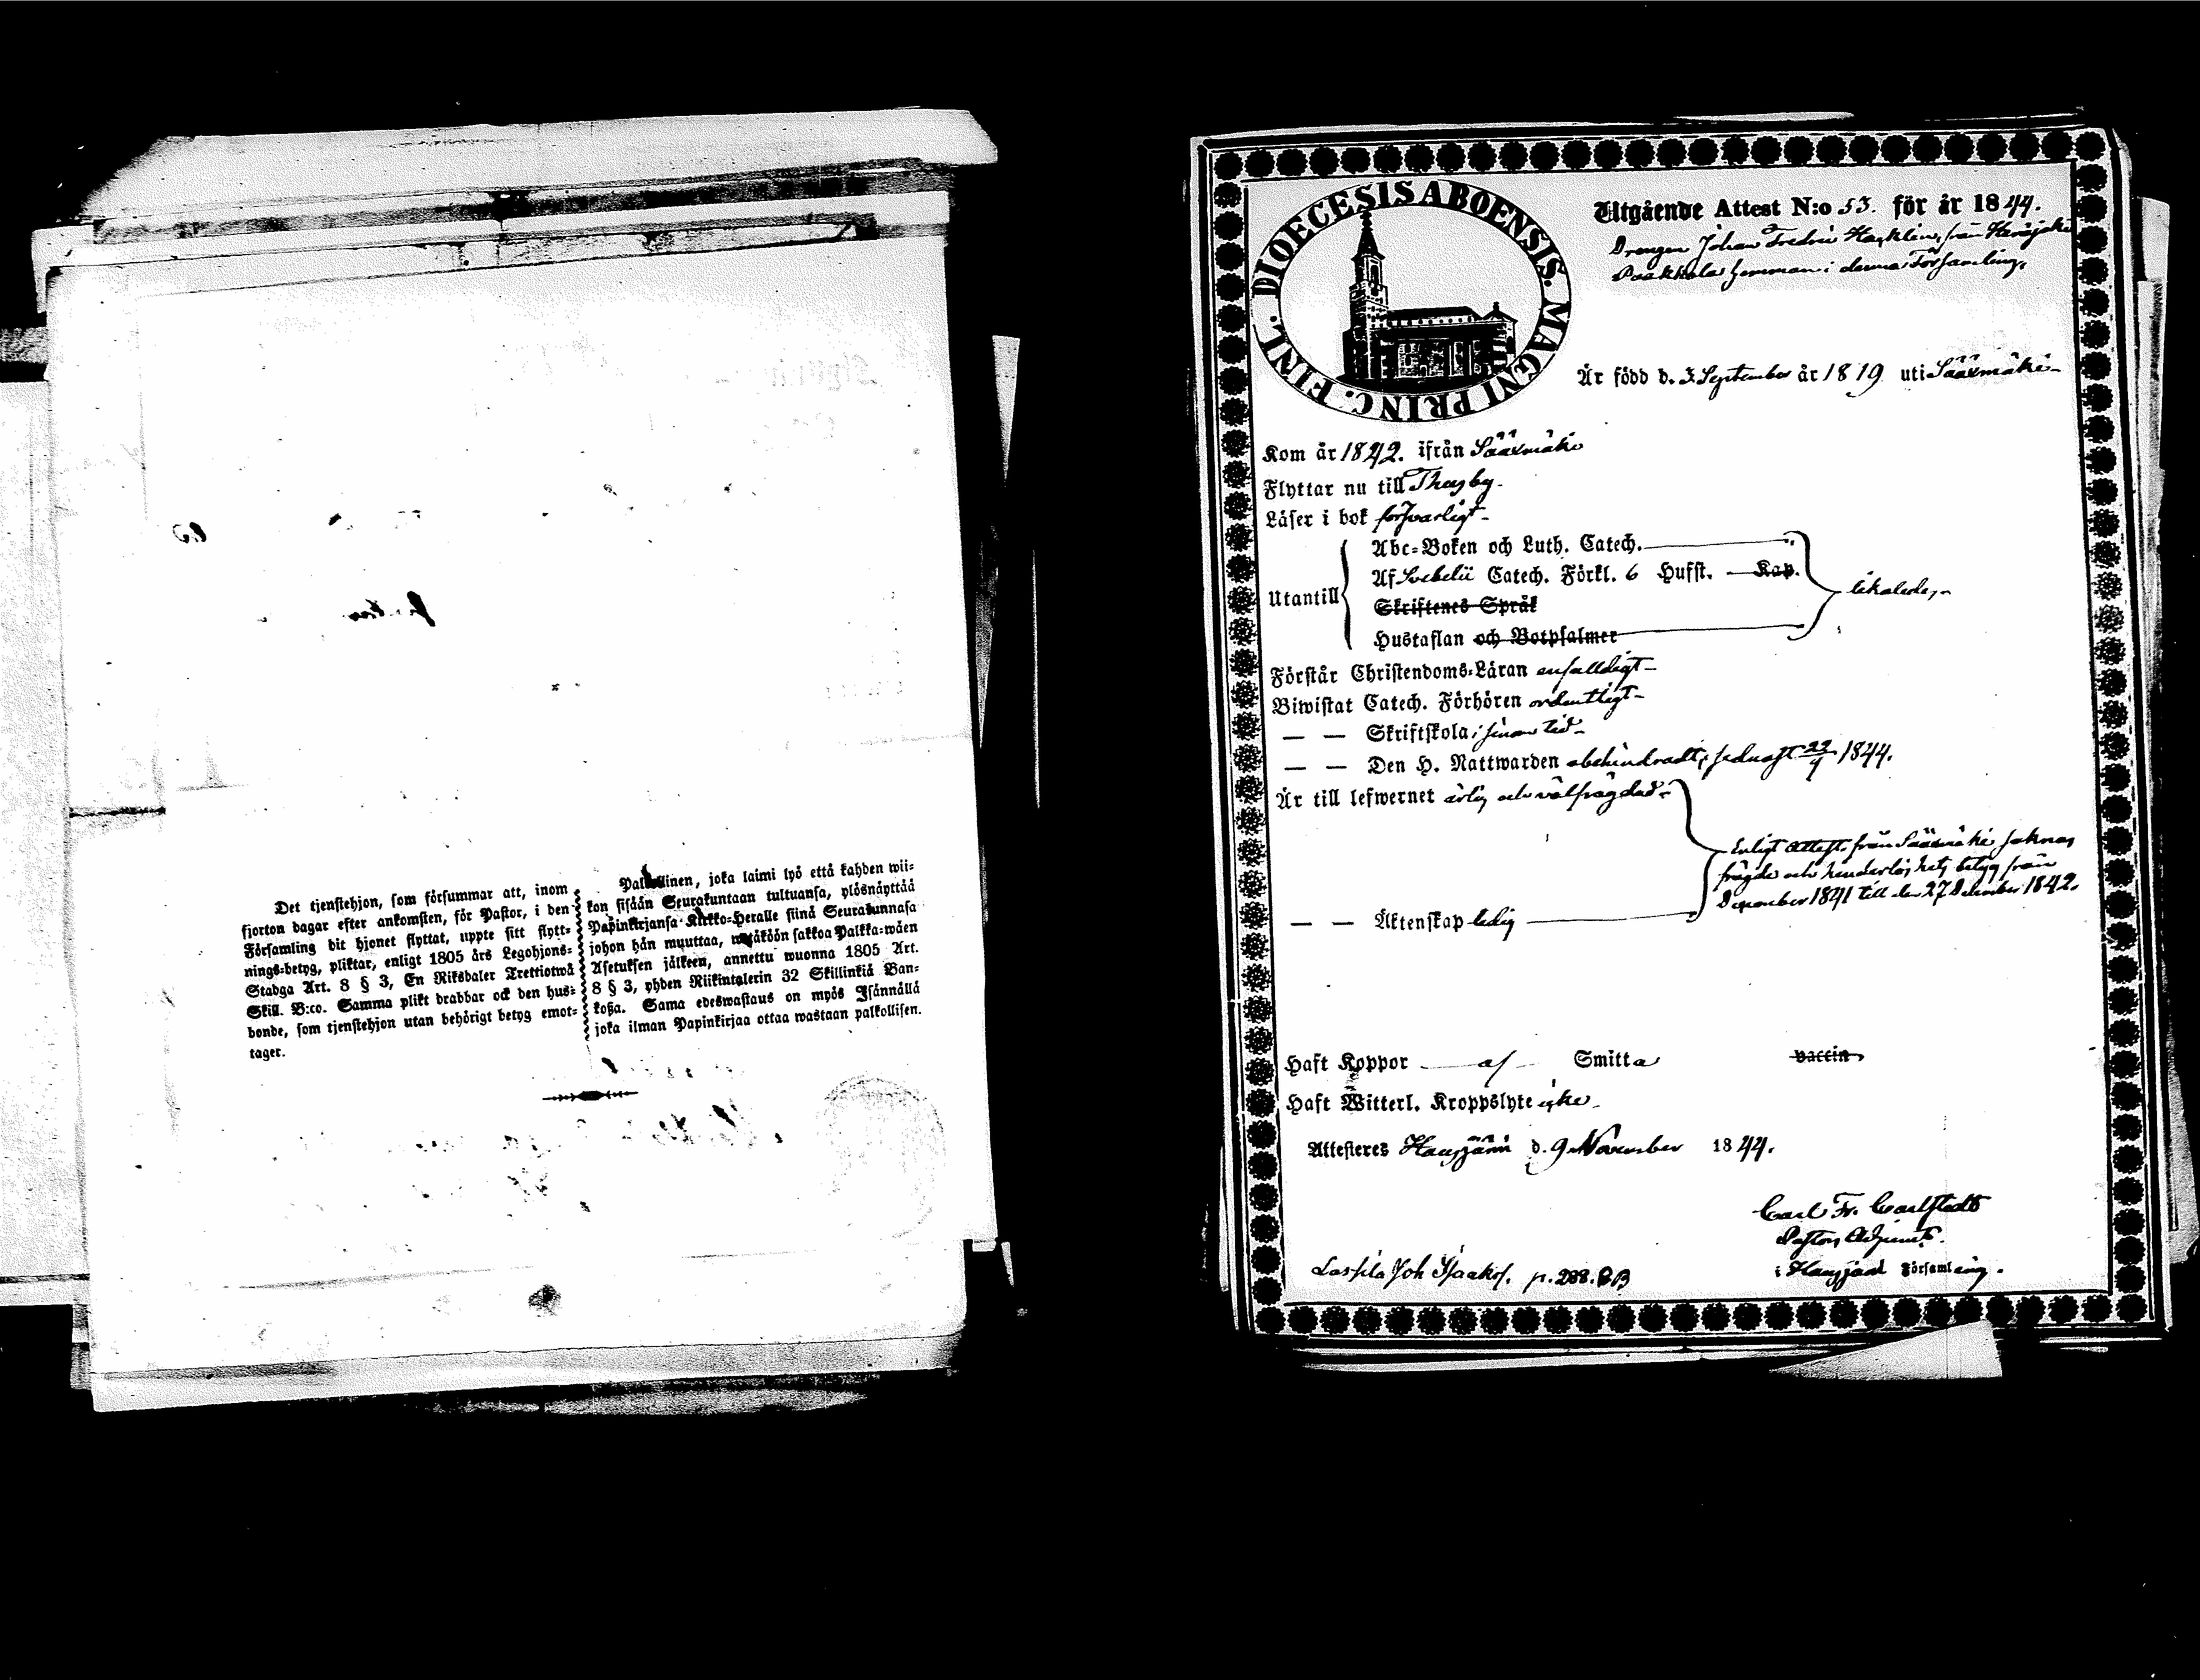 Det tjenstehjon, som försummar att, inom
fjorton dagar efter ankomsten, för Pastor, i den
Församling dit hjonet flyttat, uppte sitt flytt-
nings-betyg, pliktar, enligt 1805 års Legohjons-
Stadga Art. 8 § 3, En Riksdaler Trettiotwå
Skill. B:co. Samma plikt drabbar ock den hus-
bonde, som tjenstehjon utan behörigt betyg emot-
tager.
Palkollinen, joka laimi lyö että kahden wii-
kon sisään Seurakuntaan tultuansa, ylösnäyttää
Papinkirjansa Kirkko-Heralle siinä Seurakunnasa
johon hän muuttaa, wetäköön sakkoa Palkka-wäen
Asetuksen jälkeen, annettu wuonna 1805 Art.
8 § 3, yhden Riikintalerin 32 Skillinkiä Ban-
koßa. Sama edeswastaus on myös Isännällä
joka ilman Papinkirjaa ottaa wastaan palkollisen.
DIOECESIS ABOENSIS. MAGNI PRINC. FINL.
Utgående Attest N:o 53. för år 1844.
Drengen Johan Fredric Hagklin, från
Paakkola hemman i denna Församling,
Är född d. 3. September år 1819 uti Sääxmäki
Kom år 1842. ifrån Sääxmäki
Flyttar nu till Thusby.
Läser i bok försvarligt
Utantill
Abc-Boken och Luth. Catech.
Af Svebelii Catech. Förkl. 6 Hufst. Kap.
Skriftenes Språk
Hustaflan och Botpsalmer
likaledes,
Förstår Christendoms-Läran enfalldigt
Biwistat Catech. Förhören ordentligt
— — Skriftskola i sinom tid
— — Den H. Nattwarden obehindradt, sednast 22/9 1844.
Är till lefwernet ärlig och välfrägdad
Enligt Attest från Sääxmäki saknas
frägde och hinderlöshets betyg från
December 1841 till den 27 December 1842.
— — Äktenskap ledig
Haft Koppor af Smitta vaccin
Haft Witterl. Kroppslyte icke
Attesteres Hausjärvi d. 9 November 1844.
Carl Fr. Carlstedt
Pastors Adjunct
i Hausjärvi Församling.
Lassila Joh Isaaks. p. 288. BB